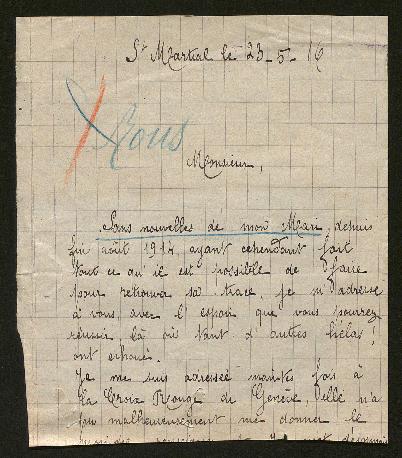 St Martial le 23-5-16
Nous
Monsieur,
Sans nouvelles de mon Mari, depuis
fin août 1914, ayant cependant fait
tout ce qu'il est possible de faire
pour retrouver sa trace, je m'adresse
à vous avec l'espoir que vous pourrez
réussir là où tant d'autres hélas!
ont échoué.
Je me suis adressée maintes fois à
la Croix Rouge de Genève, elle n'a
pu malheureusement me donner le